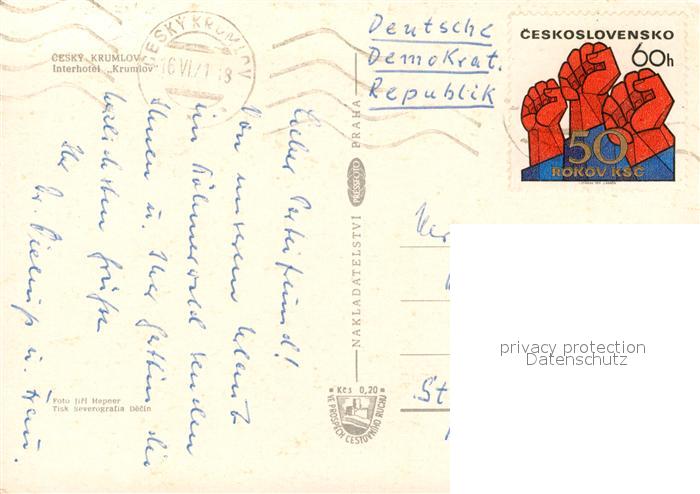 ČESKÝ KRUMLOV
Interhotel „Krumlov"
ČESKÝ KRUMLOV
16.VI.71-18
Deutsche
Demokrat.
Republik
ČESKOSLOVENSKO
60h
50
ROKOV KSČ
Lieber Parteifreund!
Von unserem Urlaub
im Böhmerwald senden
Ihnen u. Ihrer Gattin die
herzlichsten Grüße
Ihr
u. Frau.
NAKLADATELSTVÍ PRESSFOTO PRAHA
Kčs 0,20
VE PROSPĚCH CESTOVNÍHO RUCHU
Foto Jiří Hepner
Tisk Severografia Děčín
Her
St
privacy protection
Datenschutz